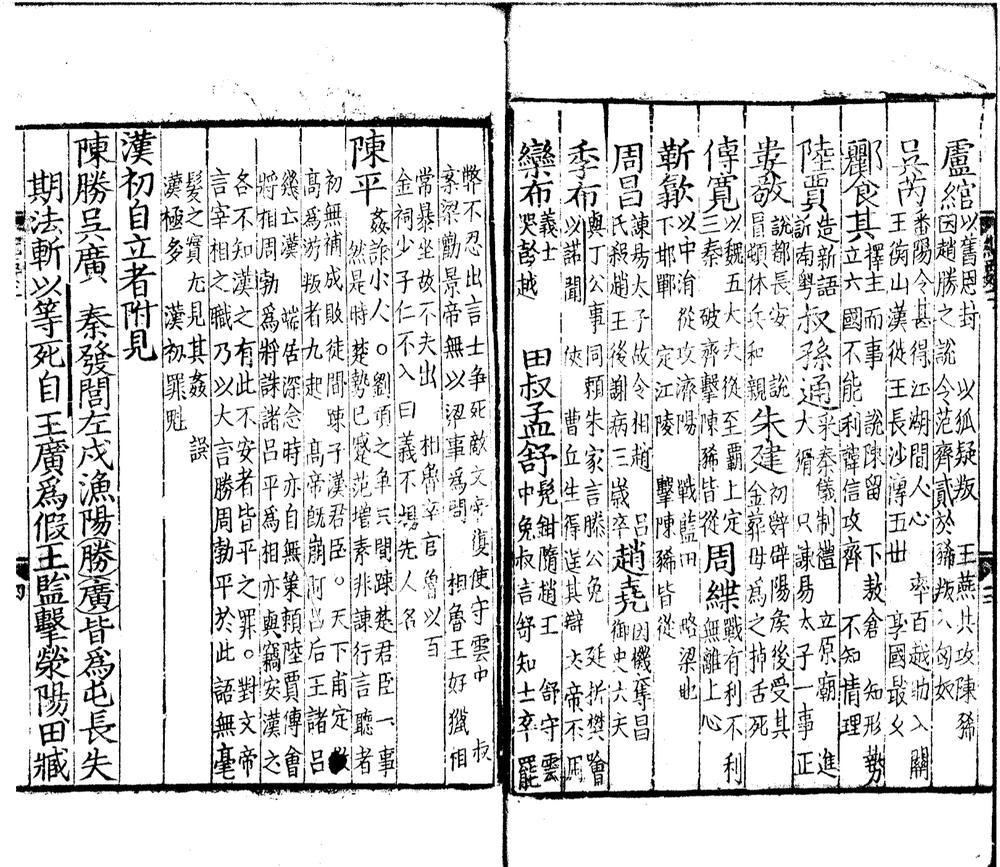 盧綰 以舊恩封 以狐疑叛 王燕共攻陳豨
因趙勝之說 令范齊貳於豨叛入匈奴
吳芮 番陽令甚得江湖間人心 率百越助入關
王衡山漢從王長沙傳五世 享國最久
酈食其 擇主而事 說陳留 下敖倉 知形勢
立六國不能利韓信攻齊 不知情理
陸賈 造新語
訴南粤
叔孫通 采秦儀制禮 立原廟 進
大猾 只諫易太子一事正
婁敬 說都長安 說
冒頓休兵和親
朱建 初辭辟陽侯後受其
金葬母爲之掉舌死
傅寬 以魏五大夫從至霸上定
三秦 破齊擊陳豨皆從
周緤 戰有利不利
無離上心
靳歙 以中涓從攻濟陽 戰藍田 略梁地
下邯鄲 定江陵 擊陳豨皆從
周昌 諫易太子故令相趙 吕
氏殺趙王後謝病三歲卒
趙堯 因機奪昌
御史大夫
季布 與丁公事同賴朱家言滕公免 廷折樊噲
以諾聞 俠 曹丘生得進其辯 文帝不用
欒布 義士
哭彭越
田叔孟舒 髡鉗隨趙王 舒守雲
中免叔言舒知士卒罷
弊不忍出言士爭死敵文帝復使守雲中 叔
案梁勸景帝無以梁事爲問 相魯王好獵相
常暴坐故不大出 相魯卒官魯以百
金祠少子仁不入曰義不傷先人名
陳平 姦詐小人 。劉項之爭只間疎楚君臣一事
然是時楚勢已蹙范增素非諫行言聽者
初無補成敗徒間疎子漢君臣。天下甫定
高爲游叛者九起 高帝既崩阿吕后王諸吕
幾亡漢 端居深念時亦自無策賴陸賈傅會
將相周勃爲將誅諸吕平爲相亦與竊安漢之
各不知漢之有此不安者皆平之罪。對文帝
言宰相之職乃以大言勝周勃平於此語無毫
髮之實尤見其姦 誤
漢極多 漢初罪魁
漢初自立者附見
陳勝吳廣 秦發閭左戍漁陽勝廣皆爲屯長失
期法斬以等死自王廣爲假王監擊滎陽田臧